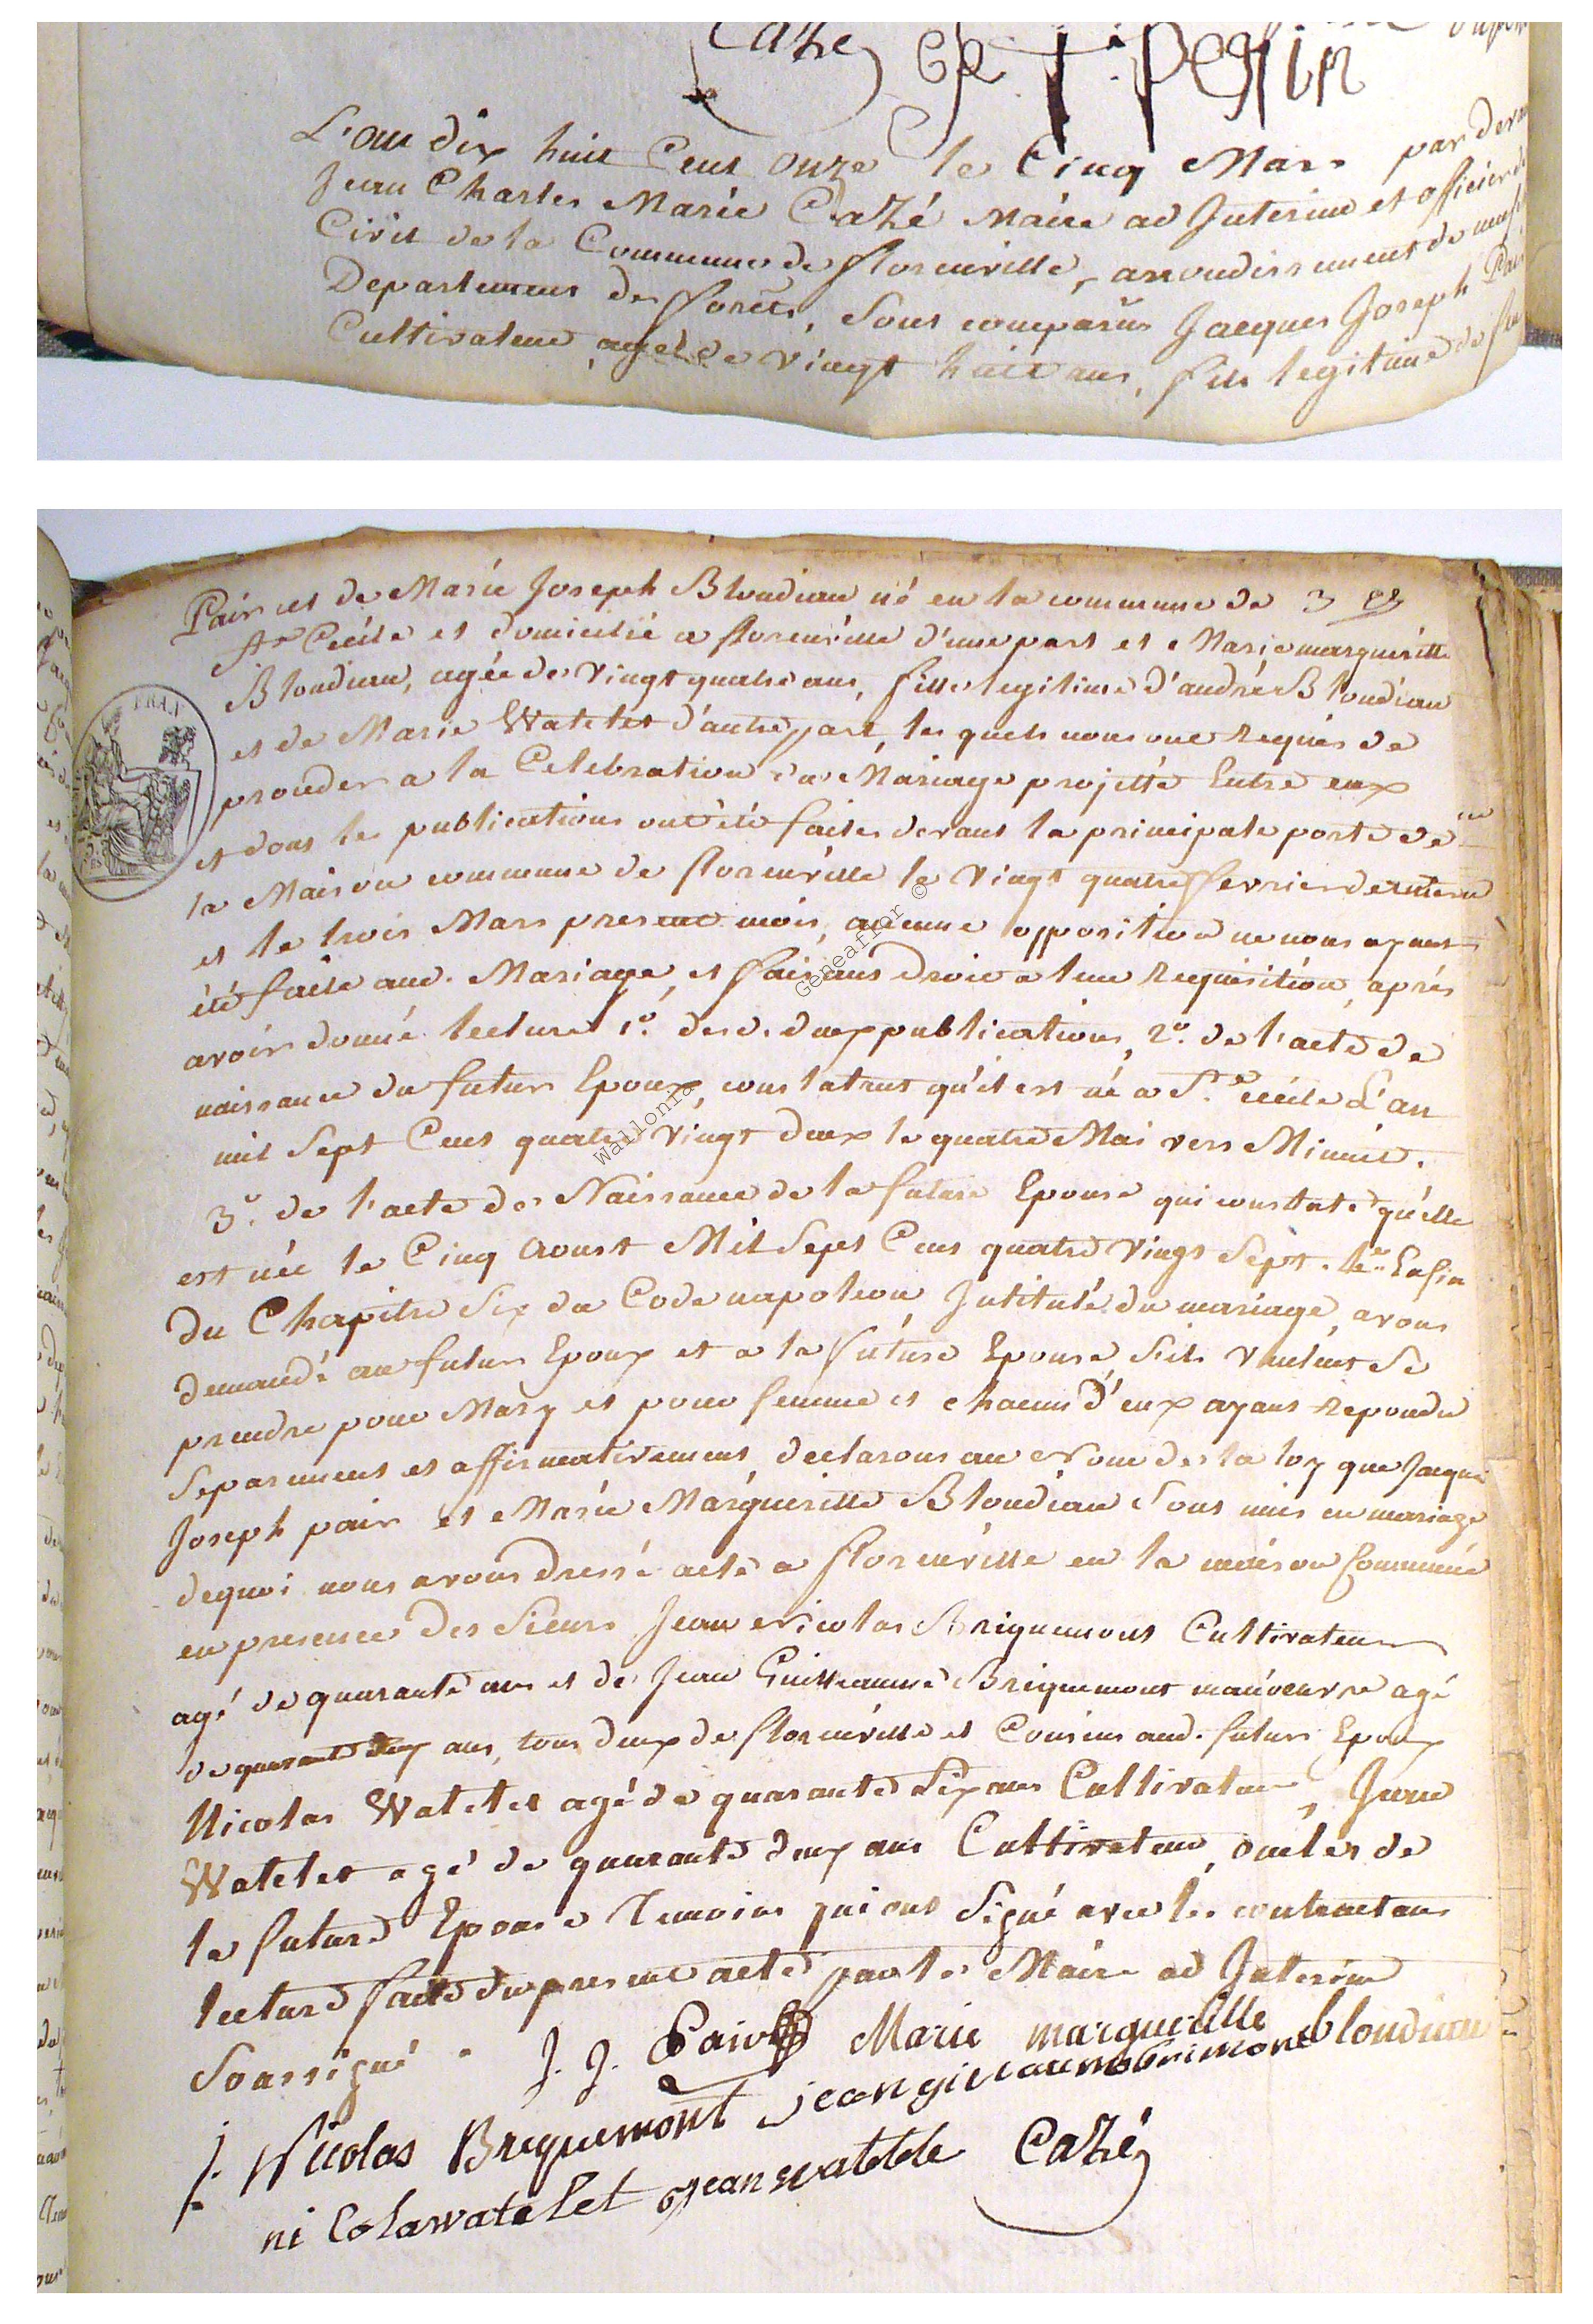 Cazé et J: pessin
L'an dix huit Cent onze le Cinq Mars par devant
Jean Charles Marie Cazé Maire ad Interim et officier de
Civil de la Commune de florenville, arrondissement de
Departement des forêts, Sont comparus Jacques Joseph Pair
Cultivateur, agé de vingt huit ans, fils legitime de
Pair et de Marie Joseph Blondiau né en la commune de
Ste Cecile et domicilié a florenville d'une part et Marie marguéritte
Blondiau, agée de vingt quatre ans, fille legitime d'andré Blondiau
et de Marie Watelet d'autre part, les quels nous ont requis de
proceder a la Celebration du Mariage projetté Entre eux
et dont les publications ont été faites devant la principale porte de
la Maison commune de florenville le vingt quatre fevrier dernier
et le trois Mars present mois, aucune opposition ne nous ayant
été faite aud. Mariage, et faisant droit a leur requisition, aprés
avoir donné lecture 1º. desd. deux publications, 2º. de l'acte de
naissance du futur Epoux, constatant qu'il est né a Ste. cécile L'an
mil Sept Cent quatre vingt deux le quatre Mai vers Minuit.
3º. de l'acte de Naissance de la future Epouse qui constate qu'elle
est née le Cinq Aoust Mil Sept Cent quatre vingt Sept. Enfin
du Chapitre Six du Code napoleon Intitulé du mariage, avons
demandé au futur Epoux et a la future Epouse s'ils veulent Se
prendre pour Mary et pour femme et chacun d'eux ayant repondu
Separement et affirmativement, declarons au Nom de la loy que Jacque
Joseph pair et Marie Marguéritte Blondiau Sont unis en mariage
dequoi nous avons dressé acte a florenville en la maison Commune
en presence des Sieurs Jean Nicolas Briquemont Cultivateur
agé de quarante ans et de Jean Guilleaume Briquemont manoeuvre agé
de quarante deux ans, tous deux de florenville et Cousins aud. futur Epoux
Nicolas Watelet agé de quarante Six ans Cultivateur, Jean
Watelet agé de quarante deux ans Cultivateur, oncles de
la future Epouse Temoins qui ont Signé avec les contractans
lecture faite du present acte par le Maire ad Interim
Soussigné. J. J. Pair Marie margueritte blondiau
j. Nicolas Brequemont jean gilleaume brimont
nicolas watelet jean watelle Cazé
FRAN
Wallonia Geneaflor ©